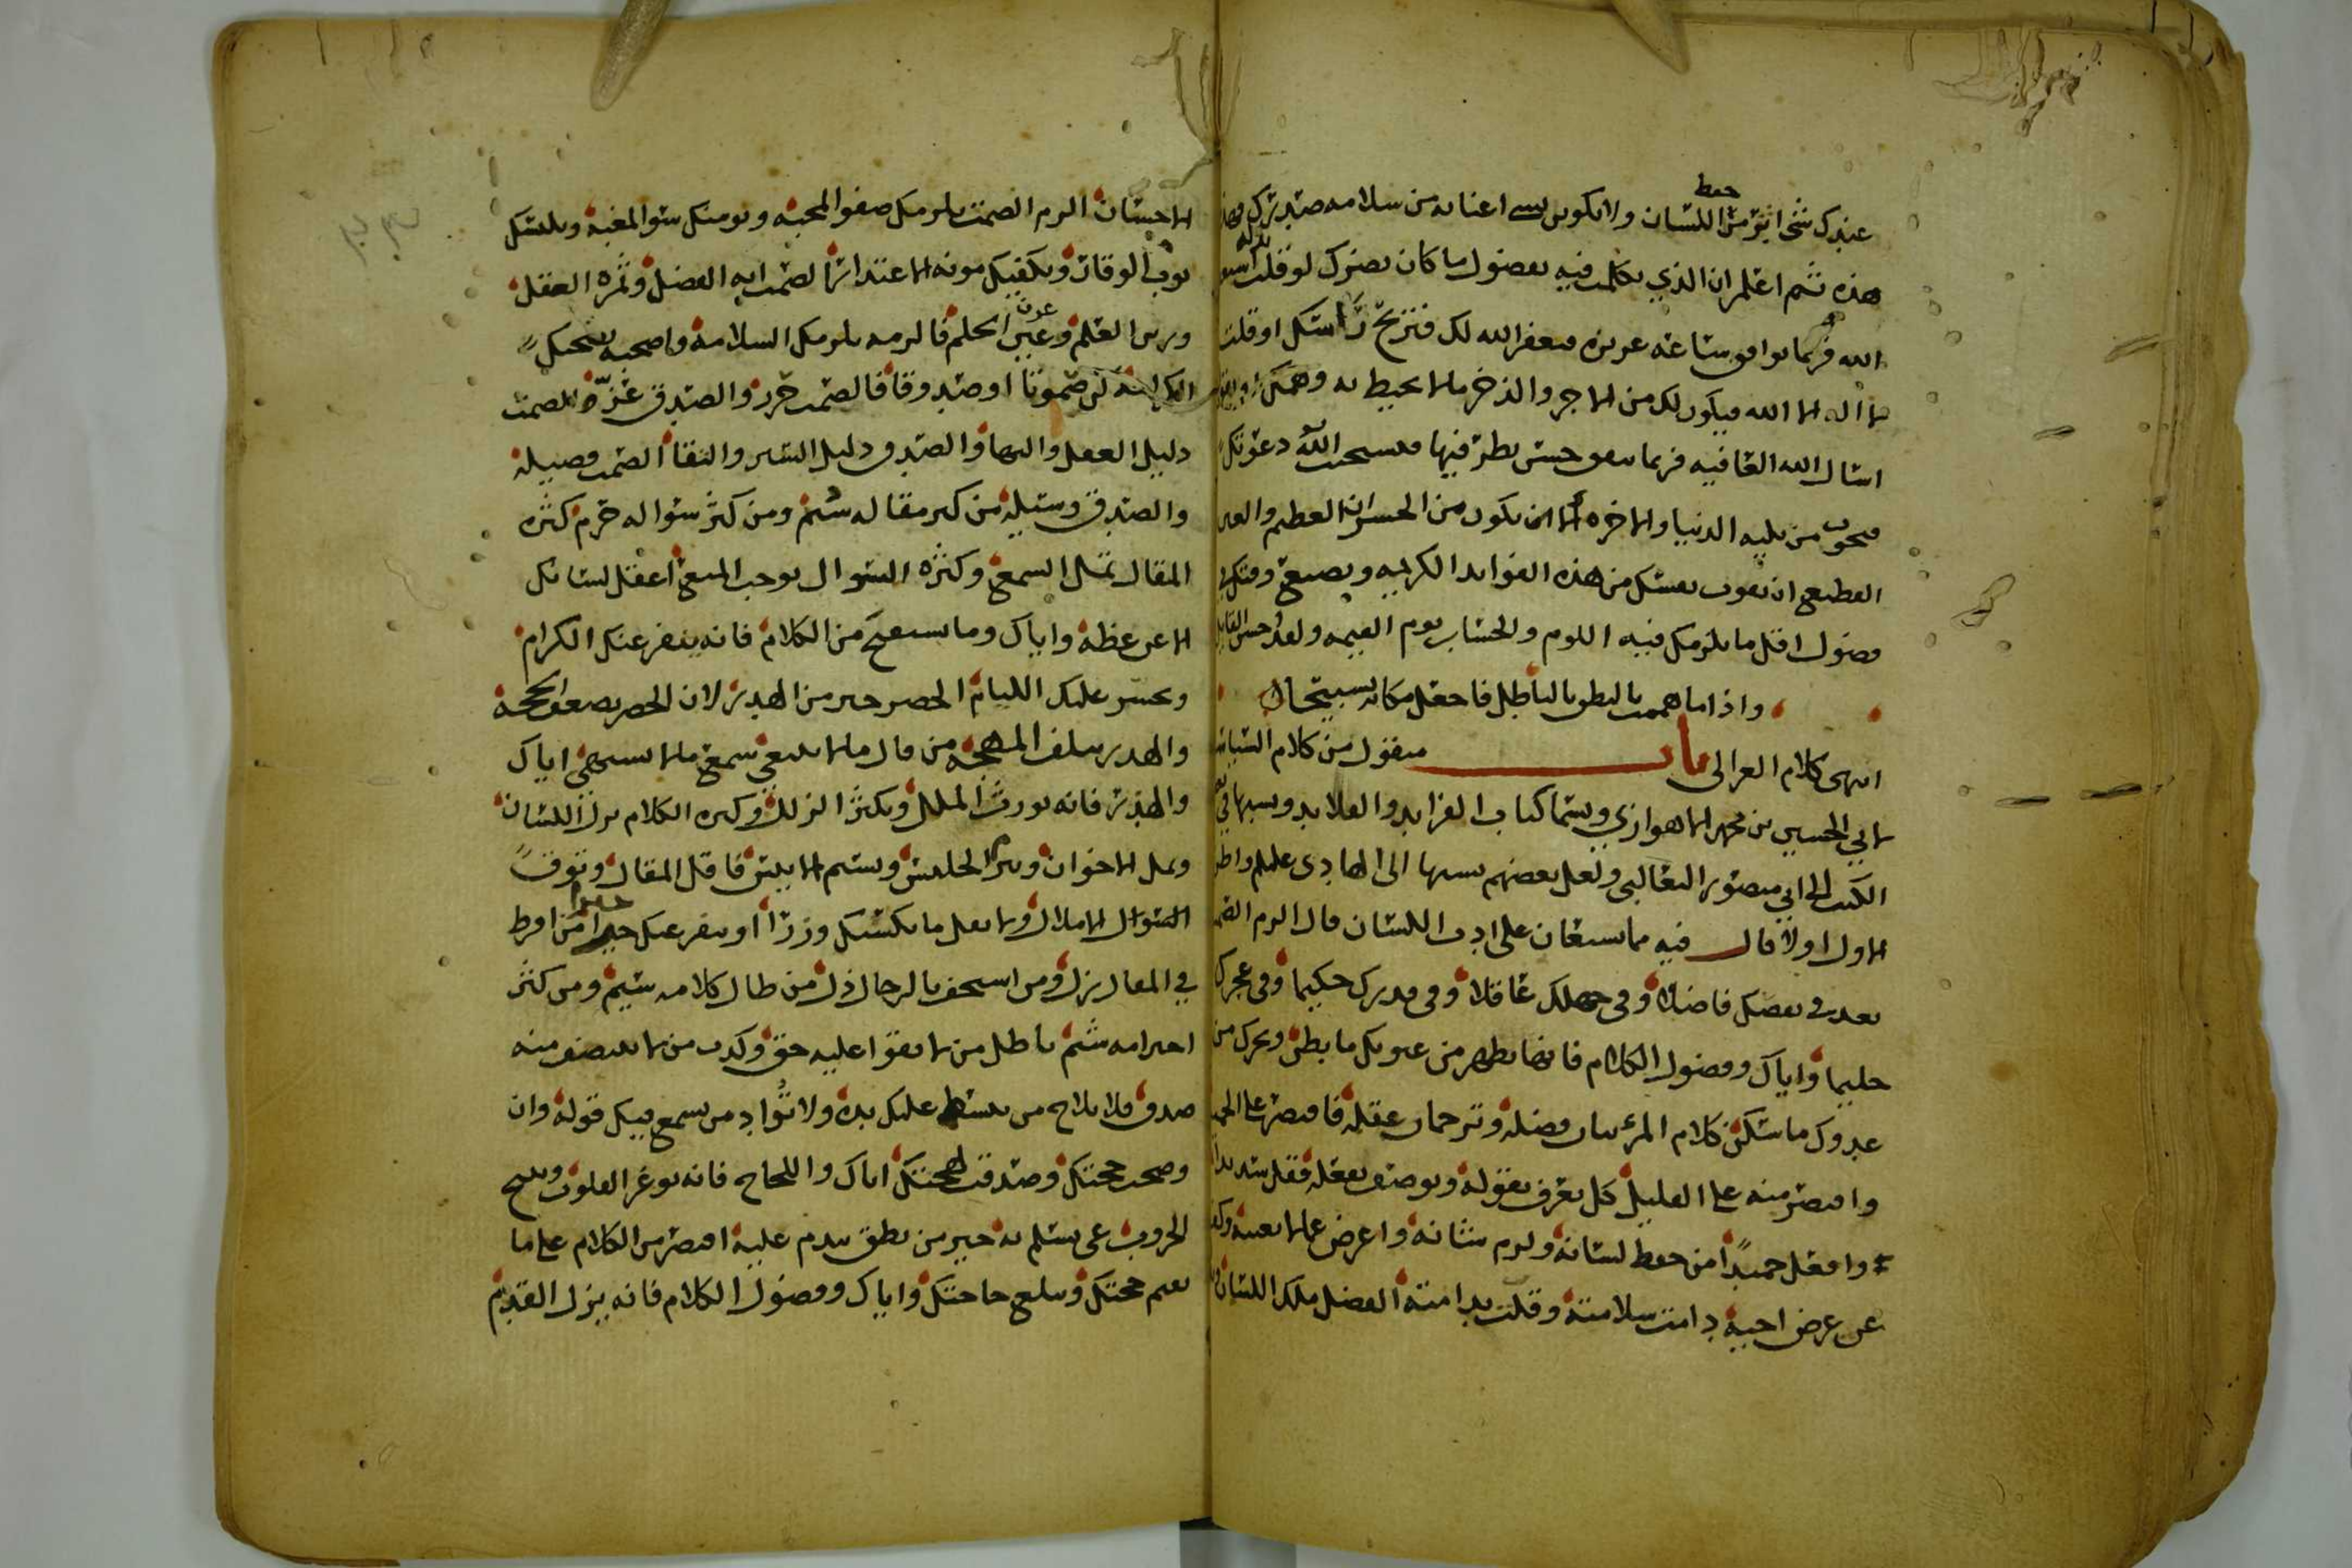 عندك شي اثر من حفظ اللسان ولا تكونن بشي اعنا به من سلامة صدرك
هذه ثم اعلم ان الذي تكلمت فيه بفضول ما كان يضرك لو قلت بدله استغفر
الله فربما توافق ساعة عزيزة فيغفر الله لك فتربح راسك او قلت
لا اله الا الله فيكون لك من الاجر والذخر ما لا يحيط به وهمك
اسال الله العافية فربما يتفق حسن نظر فيها فيستجيب الله دعوتك
فتنجو من بلية الدنيا والاخرة اما ان يكون من الخسران العظيم والغبن
الفظيع ان تفوت نفسك من هذه الفوايد الكريمة وتضيع وقتك
فضول اقل ما يلزمك فيه اللوم والحساب يوم القيمة ولقد احسن القايل
واذا ما هممت بالنطق بالباطل فاجعل مكانه تسبيحا
انتهى كلام الغزالي باب منقول من كلام
لابي الحسين بن محمد الاهوازي ويسما كتاب الفرايد والقلايد وينسبها في بعض
الكتب الى ابي منصور الثعالبي ولعل بعضهم ينسبها الى الهادي عليلم واظن
الاول اولا قال فيه مما يستعان على ادب اللسان قال الزم الصمت
تعد في نقصك فاضلا وفي جهلك عاقلا وفي قدرك حكيما وفي عجزك
حليما واياك وفضول الكلام فانها تظهر من عيوبك ما بطن وتحرك من
عدوك ما سكن كلام المرء بيان فضله وترجمان عقله فاقصره على الجميل
واقتصر منه على القليل كل يعرف بقوله ويوصف بفعله فقل سديدا
وافعل حميدا من حفظ لسانه ولزم شانه واعرض عما لا يعنيه وكف
عن عرض اخيه دامت سلامته وقلت ندامته افضل ملك اللسان
الاحسان الزم الصمت يلزمك صفو المحبة ويومنك سوء المغبة ويلبسك
ثوب الوقار ويكفيك مونة الاعتذار الصمت اية الفضل وثمرة العقل
وزين العلم وعون الحلم فالزمه يلزمك السلامة واصحبه يصحبك
الكرامة كن صموتا او صدوقا فالصمت حرز والصدق عز الصمت
دليل العقل والبها والصدق دليل الستر والنقا الصمت فضيلة
والصدق وسيلة من كثر مقاله سئم ومن كثر سواله حرم كثرة
المقال تمل السمع وكثرة السوال توجب المنع اعقل لسانك
الا عن عظة واياك وما يستقبح من الكلام فانه ينفر عنك الكرام
ويجسر عليك الليام الحصر خير من الهذر لان الحصر يضعف الحجة
والهذر يتلف المهجة من قال ما لا ينبغي سمع ما لا يشتهي اياك
والهذر فانه يورث الملل ويكثر الزلل وكثرة الكلام يزل اللسان
ويمل الاخوان ويبرم الجليس ويسيم الانيس فاقل المقال وتوق
السوال الاملال ولا تفعل ما يكسبك وزرا او ينفر عنك حرا من افرط
في المقال زل ومن استخف بالرجال ذل من طال كلامه سيم ومن كثر
احترامه شتم باطل من لا يقوا عليه حق وكذب من لا ينتصف منه
صدق فلا تلاح من يبسط عليك يده ولا تواد من يسمع فيك قوله وان
وصحت حجتك وصدقت لهجتك اياك واللجاج فانه يوغر القلوب وينتج
الحروب عي تسلم به خير من نطق تندم عليه اقتصر من الكلام على ما
يقيم حجتك ويبلغ حاجتك واياك وفضول الكلام فانه يزل القدم